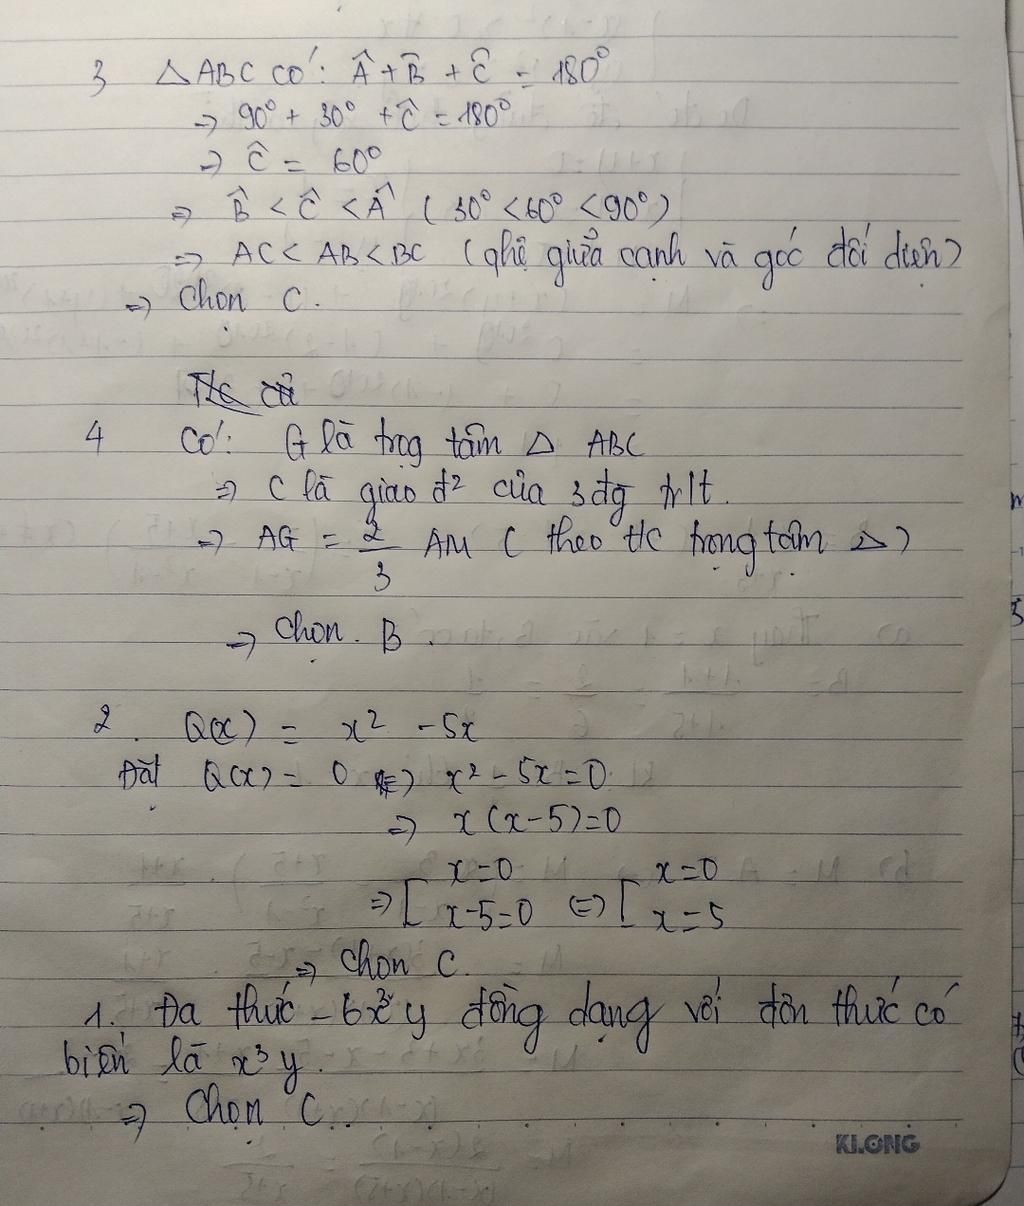 3 △ABC có: Â + B̂ + Ĉ = 180°
=> 90° + 30° + Ĉ = 180°
=> Ĉ = 60°
=> B̂ < Ĉ < Â ( 30° < 60° < 90°)
=> AC < AB < BC (qhệ giữa cạnh và góc đối diện)
=> Chọn C.
4 Có: G là trọg tâm △ ABC
=> C là giao đ² của 3 đg tr/t.
=> AG = 2/3 AM ( theo t/c trọng tâm △)
=> Chọn. B.
2. Q(x) = x² - 5x
Đặt Q(x) = 0 => x² - 5x = 0
=> x (x-5) = 0
=> [ x=0 x-5=0 <=> [ x=0 x=5
=> Chọn C.
1. Đa thức -6x³y đồng dạng với đơn thức có
biến là x³y.
=> Chọn C.
KLONG